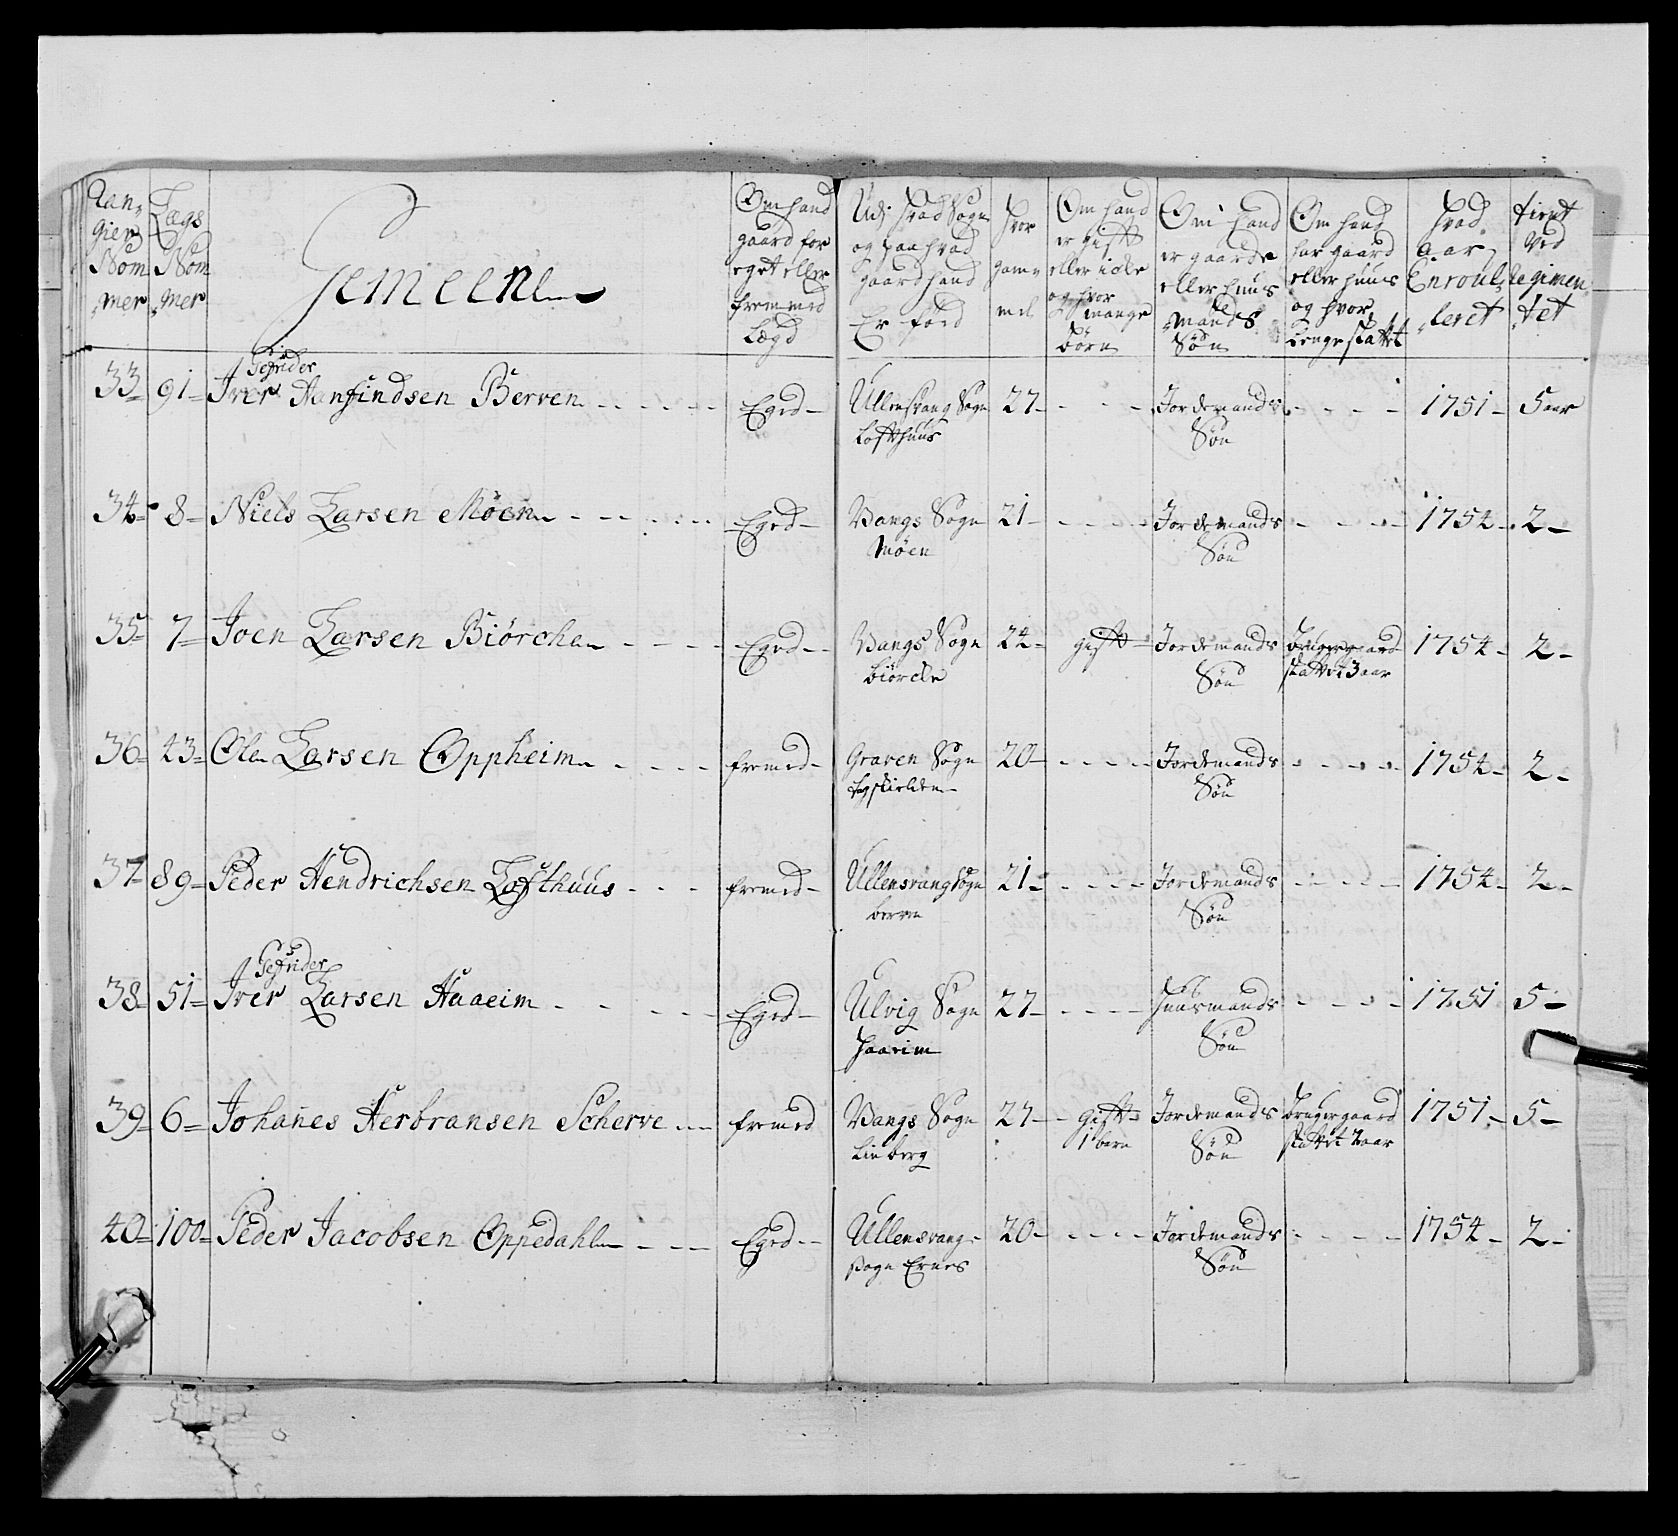 Ran„ gier Nom „mer | Lægs Nom „mer | Gemeene | Om hand gaard for eget eller fremmed Lægd | Udj hvad Sogn og paa hvad gaard hand Er föed | Hvor gam„ mel | Om hand er gift eller icke og hvor mange börn | Om hand er gaards eller huus mands Sön | Om hand har gaard eller huus og hvor lenge stattet | Hvad Aar Enroul„ „leret | tient ved Regimen„ „tet
Gefrider
33 | 91 | Iver Aanfindsen Berven | Eged | Ullensvang Sogn Lofthuus | 27 | Jordemands Sön | 1751 | 5 aar
34 | 8 | Niels Larsen Möen | Eged | Vangs Sogn Möen | 21 | Jordemands Sön | 1754 | 2
35 | 7 | Joen Larsen Biörche | Eged | Vangs Sogn biörcke | 24 | gift | Jordemands Sön | bruger gaard stattet 3 aar | 1754 | 2
36 | 43 | Ole Larsen Oppheim | fremed | Graven Sogn | 20 | Jordemands Sön | 1754 | 2
37 | 89 | Peder Hendrichsen Lofthuus | fremed | Ullensvang Sogn berven | 21 | Jordemands Sön | 1754 | 2
Gefrider
38 | 51 | Iver Larsen Haaeim | Eged | Ulvig Sogn Haaeim | 27 | Huusmands Sön | 1751 | 5
39 | 6 | Johanes Herbransen Scherve | fremed | Vangs Sogn Lieberg | 27 | gift 1 barn | Jordemands Sön | bruger gaard stattet 2 aar | 1751 | 5
40 | 100 | Peder Jacobsen Oppedahl | Eged | Ullensvang Sogn Ernes | 20 | Jordemands Sön | 1754 | 2